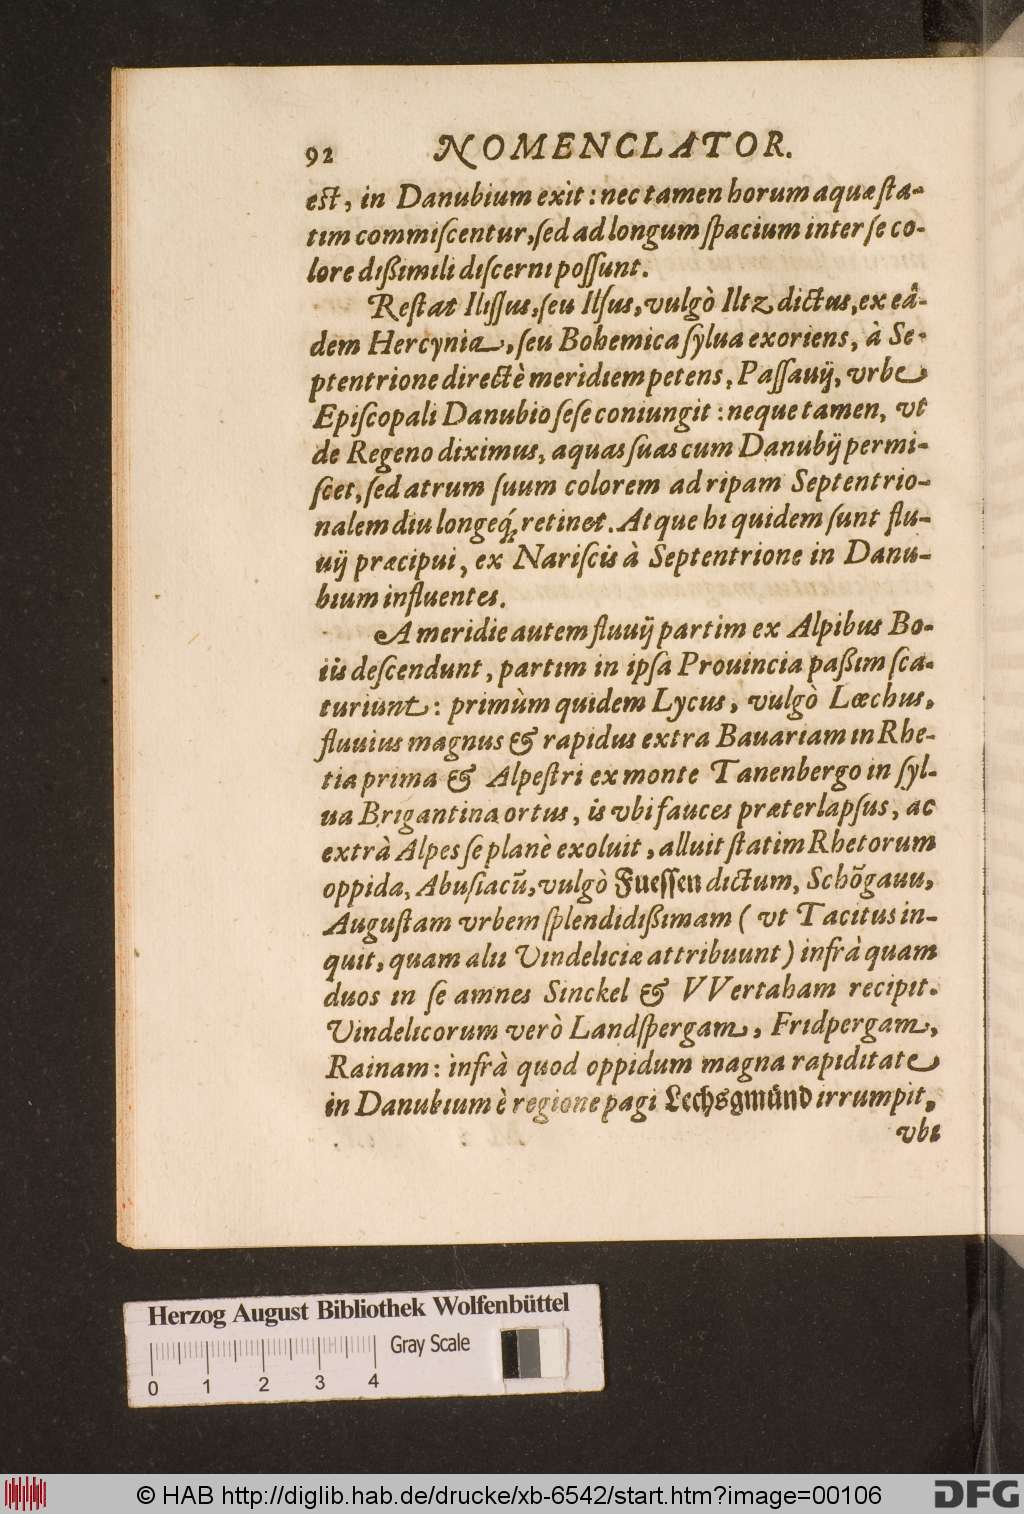 92 NOMENCLATOR.
est, in Danubium exit: nec tamen horum aquæ sta-
tim commiscentur, sed ad longum spacium inter se co-
lore dißimili discerni possunt.
Restat Ilissus, seu Ilsus, vulgò Iltz dictus, ex eâ-
dem Hercynia, seu Bohemica sylua exoriens, à Se-
ptentrione directè meridiem petens, Passauij, vrbe
Episcopali Danubio sese coniungit: neque tamen, vt
de Regeno diximus, aquas suas cum Danubij permi-
scet, sed atrum suum colorem ad ripam Septentrio-
nalem diu longeq́; retinet. Atque hi quidem sunt flu-
uij præcipui, ex Nariscis à Septentrione in Danu-
bium influentes.
A meridie autem fluuij partim ex Alpibus Bo-
iis descendunt, partim in ipsa Prouincia paßim sca-
turiunt: primùm quidem Lycus, vulgò Lœchus,
fluuius magnus & rapidus extra Bauariam in Rhe-
tia prima & Alpestri ex monte Tanenbergo in syl-
ua Brigantina ortus, is vbi fauces præterlapsus, ac
extrà Alpes se planè exoluit, alluit statim Rhetorum
oppida, Abusiacũ, vulgò Fuessen dictum, Schõgauu,
Augustam vrbem splendidißimam (vt Tacitus in-
quit, quam alii Vindeliciæ attribuunt) infrà quam
duos in se amnes Sinckel & VVertaham recipit.
Vindelicorum verò Landspergam, Fridpergam,
Rainam: infrà quod oppidum magna rapiditate
in Danubium è regione pagi Lechsgmünd irrumpit,
vbi
Herzog August Bibliothek Wolfenbüttel
Gray Scale
0 1 2 3 4
© HAB http://diglib.hab.de/drucke/xb-6542/start.htm?image=00106
DFG